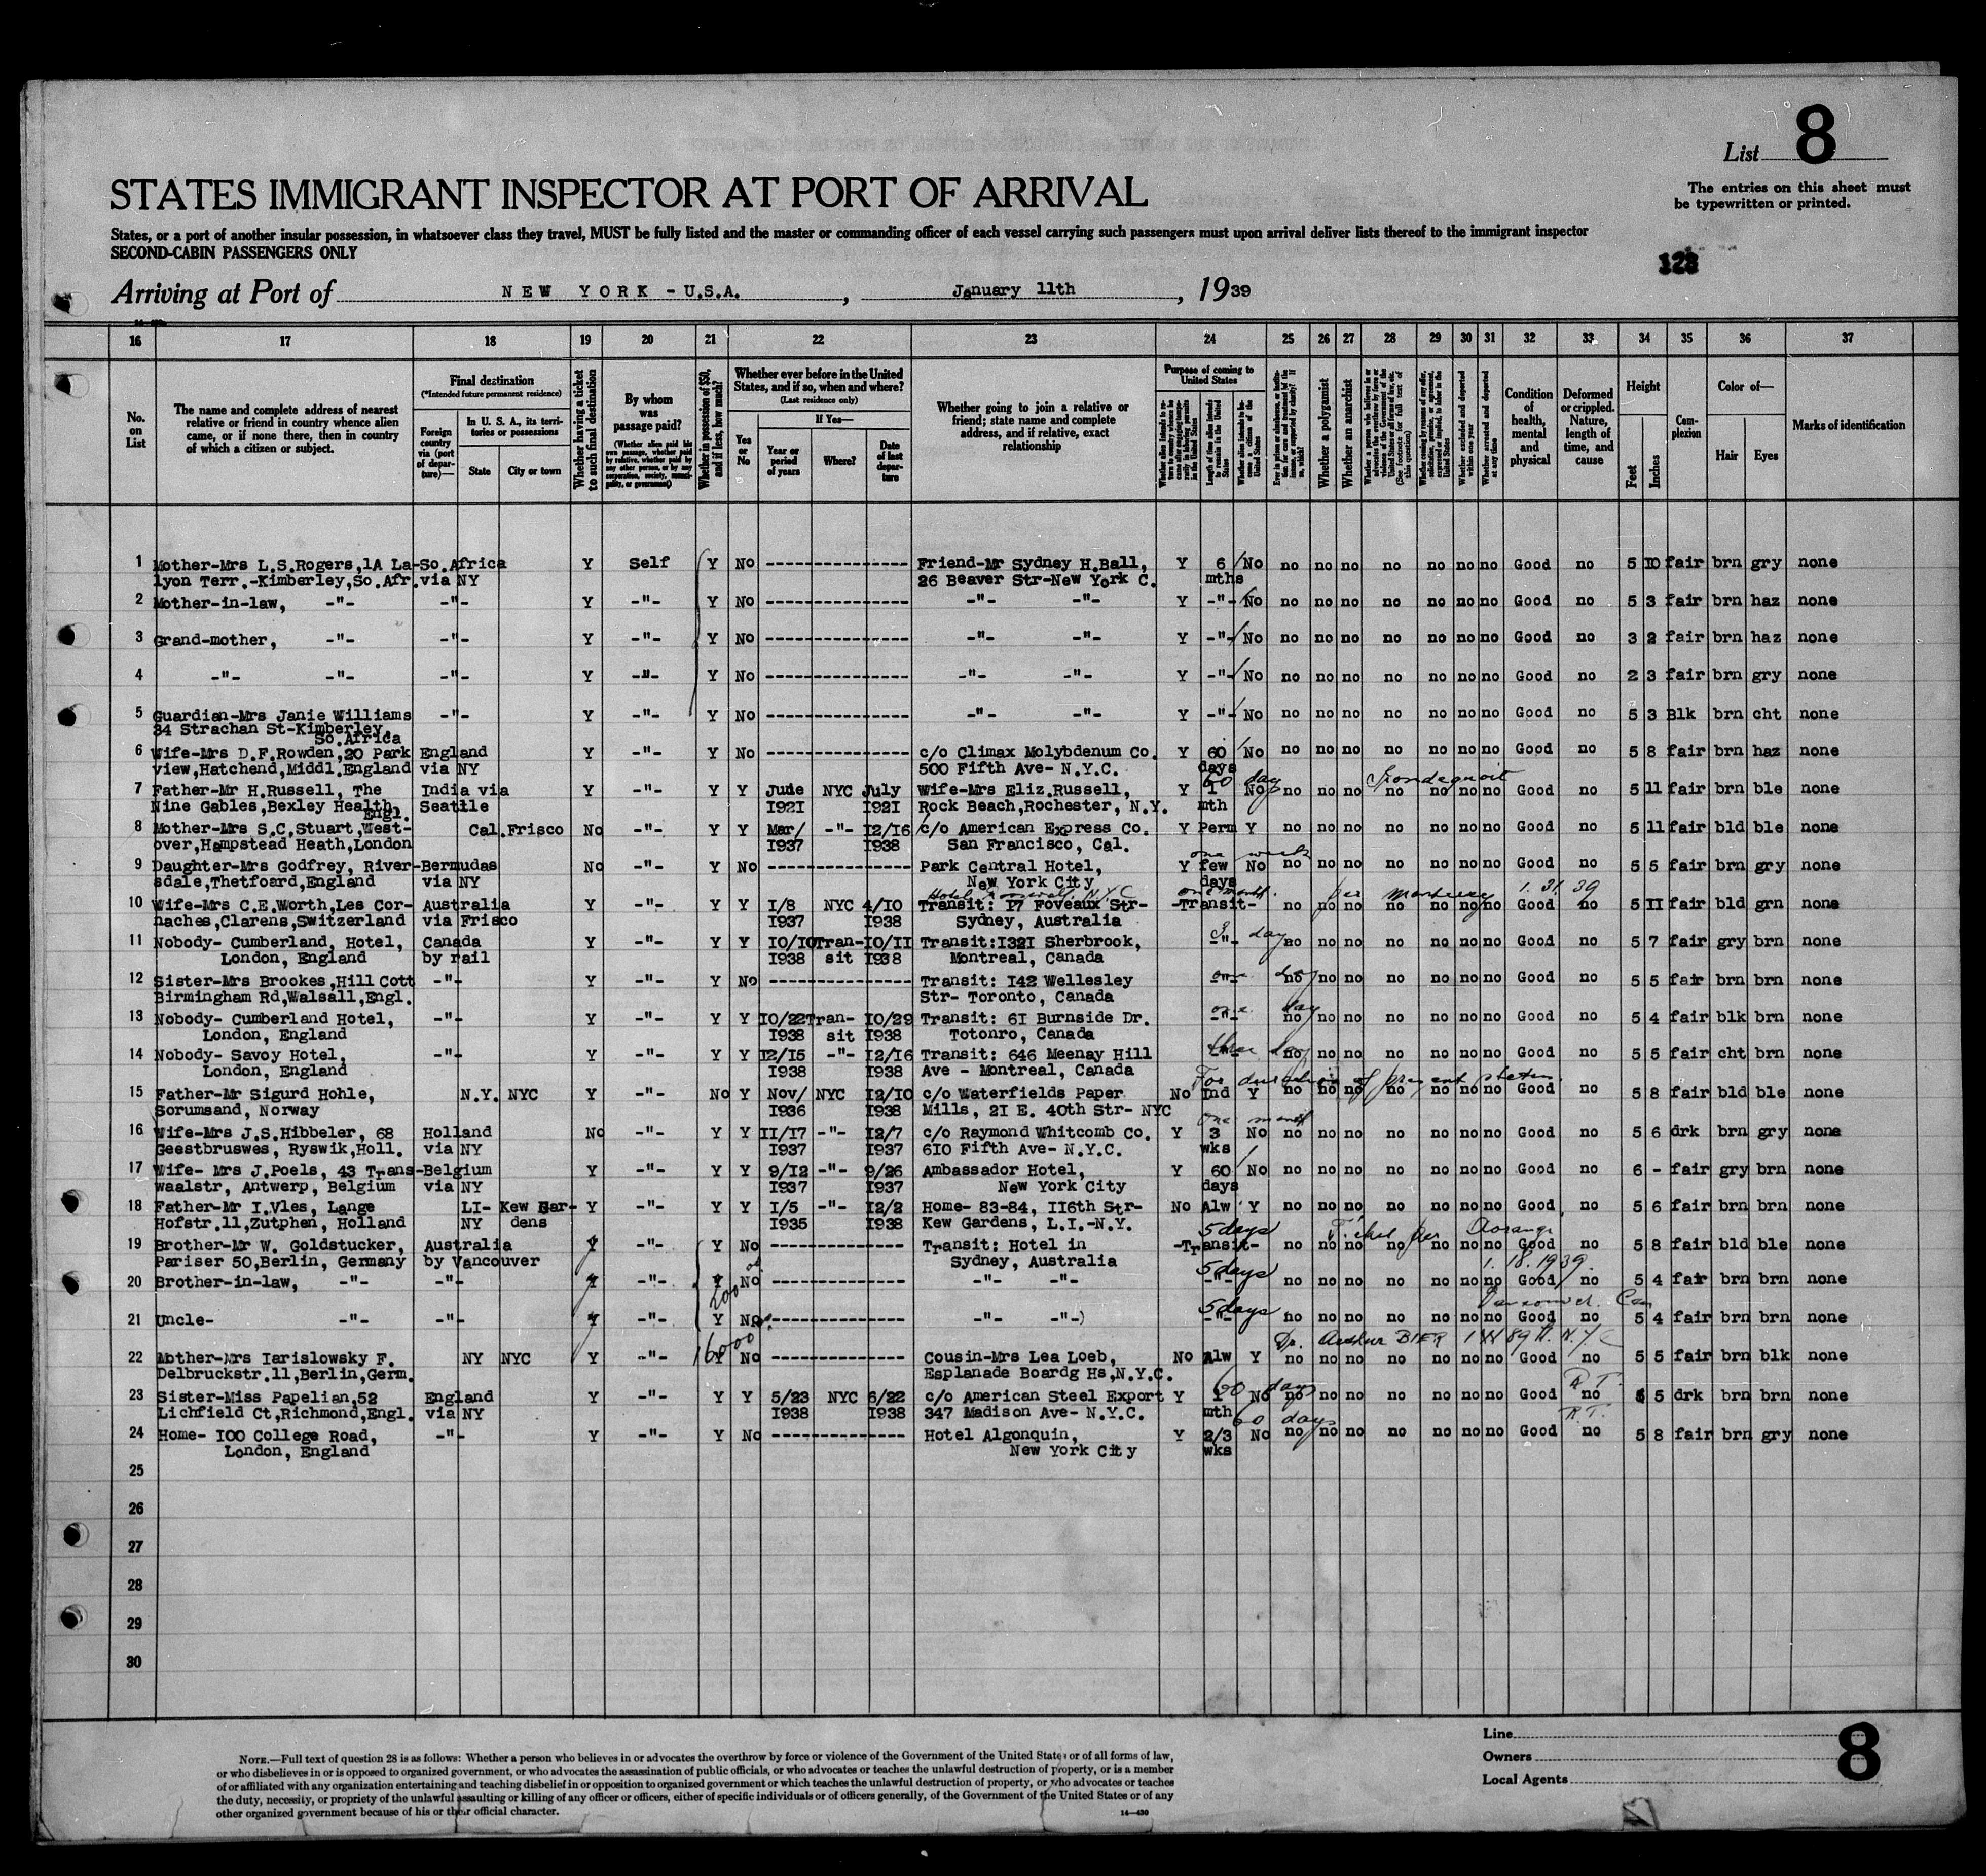 List 8
STATES IMMIGRANT INSPECTOR AT PORT OF ARRIVAL
The entries on this sheet must
be typewritten or printed.
States, or a port of another insular possession, in whatsoever class they travel, MUST be fully listed and the master or commanding officer of each vessel carrying such passengers must upon arrival deliver lists thereof to the immigrant inspector
SECOND-CABIN PASSENGERS ONLY
128
Arriving at Port of NEW YORK - U.S.A. , January 11th , 1939
16 17 18 19 20 21 22 23 24 25 26 27 28 29 30 31 32 33 34 35 36 37
No. on List
The name and complete address of nearest relative or friend in country whence alien came, or if none there, then in country of which a citizen or subject.
Final destination
(*Intended future permanent residence)
Foreign country via (port of departure)—
In U. S. A., its territories or possessions
State
City or town
Whether having a ticket to such final destination
By whom was passage paid?
(Whether alien paid his own passage, whether paid by relative, whether paid by any other person, or by any corporation, society, municipality, or government)
Whether in possession of $50, and if less, how much?
Whether ever before in the United States, and if so, when and where?
(Last residence only)
Yes or No
If Yes—
Year or period of years
Where?
Date of last departure
Whether going to join a relative or friend; state name and complete address, and if relative, exact relationship
Purpose of coming to United States
Length of time alien intends to remain in the United States
Whether alien intends to become a citizen of the United States
Whether a polygamist
Whether an anarchist
Whether excluded and deported within one year
Whether arrested and deported at any time
Condition of health, mental and physical
Deformed or crippled. Nature, length of time, and cause
Height
Feet
Inches
Complexion
Color of—
Hair
Eyes
Marks of identification
1 Mother-Mrs L.S.Rogers,1A La- So.Africa Y Self Y No -------------- Friend-Mr Sydney H.Ball, Y 6 No no no no no no no no Good no 5 10 fair brn gry none
lyon Terr.-Kimberley,So.Afr. via NY 26 Beaver Str-New York C. mths
2 Mother-in-law, -"- -"- Y -"- Y No -------------- -"- -"- Y -"- No no no no no no no no Good no 5 3 fair brn haz none
3 Grand-mother, -"- -"- Y -"- Y No -------------- -"- -"- Y -"- No no no no no no no no Good no 3 2 fair brn haz none
4 -"- -"- -"- Y -"- Y No -------------- -"- -"- Y -"- No no no no no no no no Good no 2 3 fair brn gry none
5 Guardian-Mrs Janie Williams -"- Y -"- Y No -------------- -"- -"- Y -"- No no no no no no no no Good no 5 3 Blk brn cht none
34 Strachan St-Kimberley,
So.Africa
6 Wife-Mrs D.F.Rowden,20 Park England Y -"- Y No -------------- c/o Climax Molybdenum Co. Y 60 No no no no no no no no Good no 5 8 fair brn haz none
view,Hatchend,Middl.England via NY 500 Fifth Ave- N.Y.C. days
60 day Irondequoit
7 Father-Mr H.Russell, The India via Y -"- Y Y June NYC July Wife-Mrs Eliz.Russell, Y 1 No no no no no no no no Good no 5 11 fair brn ble none
Nine Gables,Bexley Health, Seattle 1921 1921 Rock Beach,Rochester, N.Y. mth
Engl.
8 Mother-Mrs S.C.Stuart,West- Cal. Frisco No -"- Y Y Mar/ -"- 12/16 c/o American Express Co. Y Perm Y no no no no no no no Good no 5 11 fair bld ble none
over,Hampstead Heath,London 1937 1938 San Francisco, Cal.
one week
9 Daughter-Mrs Godfrey, River- Bermudas No -"- Y No -------------- Park Central Hotel, Y few No no no no no no no no Good no 5 5 fair brn gry none
sdale,Thetfoard,England via NY New York City days
Hotel N.Y.C one month. per Monterey 1.31.39
10 Wife-Mrs C.E.Worth,Les Cor- Australia Y -"- Y Y 1/8 NYC 4/10 Transit: 17 Foveaux Str- -Transit- no no no no no no no Good no 5 11 fair bld grn none
naches,Clarens,Switzerland via Frisco 1937 1938 Sydney, Australia
3 day
11 Nobody- Cumberland, Hotel, Canada Y -"- Y Y 10/10 Tran- 10/11 Transit:1321 Sherbrook, -"- no no no no no no no Good no 5 7 fair gry brn none
London, England by rail 1938 sit 1938 Montreal, Canada
one day
12 Sister-Mrs Brookes,Hill Cott -"- Y -"- Y No -------------- Transit: 142 Wellesley -"- no no no no no no no Good no 5 5 fair brn brn none
Birmingham Rd,Walsall,Engl. Str- Toronto, Canada
one day
13 Nobody- Cumberland Hotel, -"- Y -"- Y Y 10/22 Tran- 10/29 Transit: 61 Burnside Dr. -"- no no no no no no no Good no 5 4 fair blk brn none
London, England 1938 sit 1938 Totonro, Canada
three day
14 Nobody- Savoy Hotel, -"- Y -"- Y Y 12/15 -"- 12/16 Transit: 646 Meenay Hill -"- no no no no no no no Good no 5 5 fair cht brn none
London, England 1938 1938 Ave - Montreal, Canada
For duration of present status
15 Father-Mr Sigurd Hohle, N.Y. NYC Y -"- No Y Nov/ NYC 12/10 c/o Waterfields Paper No Ind Y no no no no no no no Good no 5 8 fair bld ble none
Sorumsand, Norway 1936 1938 Mills, 21 E. 40th Str- NYC
one month
16 Wife-Mrs J.S.Hibbeler, 68 Holland No -"- Y Y 11/17 -"- 12/7 c/o Raymond Whitcomb Co. Y 3 No no no no no no no no Good no 5 6 drk brn gry none
Geestbruswes, Ryswik,Holl. via NY 1937 1937 610 Fifth Ave- N.Y.C. wks
17 Wife- Mrs J.Poels, 43 Trans- Belgium Y -"- Y Y 9/12 -"- 9/26 Ambassador Hotel, Y 60 No no no no no no no no Good no 6 - fair gry brn none
waalstr, Antwerp, Belgium via NY 1937 1937 New York City days
18 Father-Mr I.Vles, Lange LI- Kew Gar- Y -"- Y Y 1/5 -"- 12/2 Home- 83-84, 116th Str- No Alw Y no no no no no no no Good no 5 6 fair brn brn none
Hofstr.11,Zutphen, Holland NY dens 1935 1938 Kew Gardens, L.I.-N.Y.
5 days Ticket per Aorangi
19 Brother-Mr W. Goldstucker, Australia Y -"- Y No -------------- Transit: Hotel in -Transit- no no no no no no no Good no 5 8 fair bld ble none
Pariser 50,Berlin, Germany by Vancouver Sydney, Australia
5 days 1.18.1939.
20 Brother-in-law, -"- -"- Y -"- Y No -------------- -"- -"- -"- no no no no no no no Good no 5 4 fair brn brn none
200 5 days Vancouver. Can
21 Uncle- -"- -"- Y -"- Y No -------------- -"- -"-) -"- no no no no no no no Good no 5 4 fair brn brn none
1600 Dr. Arthur BIER 1 W 89 St. N.Y.C
22 Mother-Mrs Iarislowsky F. NY NYC Y -"- Y No -------------- Cousin-Mrs Lea Loeb, No Alw Y no no no no no no no Good no 5 5 fair brn blk none
Delbruckstr.11,Berlin,Germ. Esplanade Boardg Hs,N.Y.C.
60 days R T.
23 Sister-Miss Papelian,52 England Y -"- Y Y 5/23 NYC 6/22 c/o American Steel Export Y 1 No no no no no no no no Good no 5 5 drk brn brn none
Lichfield Ct,Richmond,Engl. via NY 1938 1938 347 Madison Ave- N.Y.C. mth
60 days R.T.
24 Home- 100 College Road, -"- Y -"- Y No -------------- Hotel Algonquin, Y 2/3 No no no no no no no no Good no 5 8 fair brn gry none
London, England New York City wks
25
26
27
28
29
30
Line
Owners
Local Agents
8
NOTE.—Full text of question 28 is as follows: Whether a person who believes in or advocates the overthrow by force or violence of the Government of the United States or of all forms of law,
or who disbelieves in or is opposed to organized government, or who advocates the assassination of public officials, or who advocates or teaches the unlawful destruction of property, or is a member
of or affiliated with any organization entertaining and teaching disbelief in or opposition to organized government or which teaches the unlawful destruction of property, or who advocates or teaches
the duty, necessity, or propriety of the unlawful assaulting or killing of any officer or officers, either of specific individuals or of officers generally, of the Government of the United States or of any
other organized government because of his or their official character.
14—430